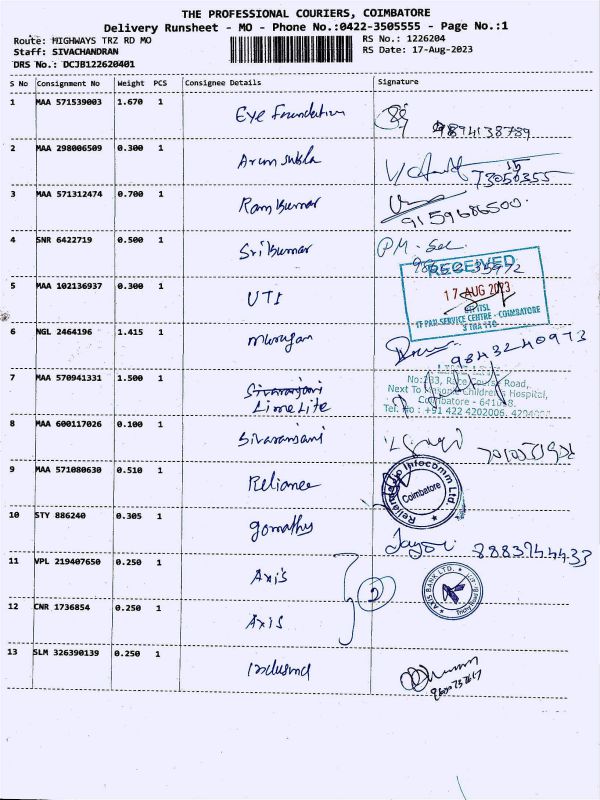 THE PROFESSIONAL COURIERS, COIMBATORE
Delivery Runsheet - MO - Phone No.:0422-3505555 - Page No.:1
Route: HIGHWAYS TRZ RD MO RS No.: 1226204
Staff: SIVACHANDRAN RS Date: 17-Aug-2023
DRS No.: DCJB122620401
S No Consignment No Weight PCS Consignee Details Signature
1 MAA 571539003 1.670 1 Eye Foundation 9894138789
2 MAA 298006509 0.300 1 Arun
3 MAA 571312474 0.700 1 Ramkumar 9159686500
4 SNR 6422719 0.500 1 Srikumar
5 MAA 102136937 0.300 1 UTI
RECEIVED
17 AUG 2023
UTIITSL
IT PAN SERVICE CENTRE - COIMBATORE
6 NGL 2464196 1.415 1 Murugan 9843240973
7 MAA 570941331 1.500 1 Sivaranjani
Lime Lite
No:133, Race Course Road,
Next To Masonic Children's Hospital,
Coimbatore - 641018.
Tel. No : +91 422 4202006,
8 MAA 600117026 0.100 1 Sivaranjani
9 MAA 571080630 0.510 1 Reliance
Reliance Jio Infocomm Ltd
Coimbatore
10 STY 886240 0.305 1 Gomathy 8883944433
11 VPL 219407650 0.250 1 Axis
2
AXIS BANK LTD.
12 CNR 1736854 0.250 1 Axis
13 SLM 326390139 0.250 1 Indusind